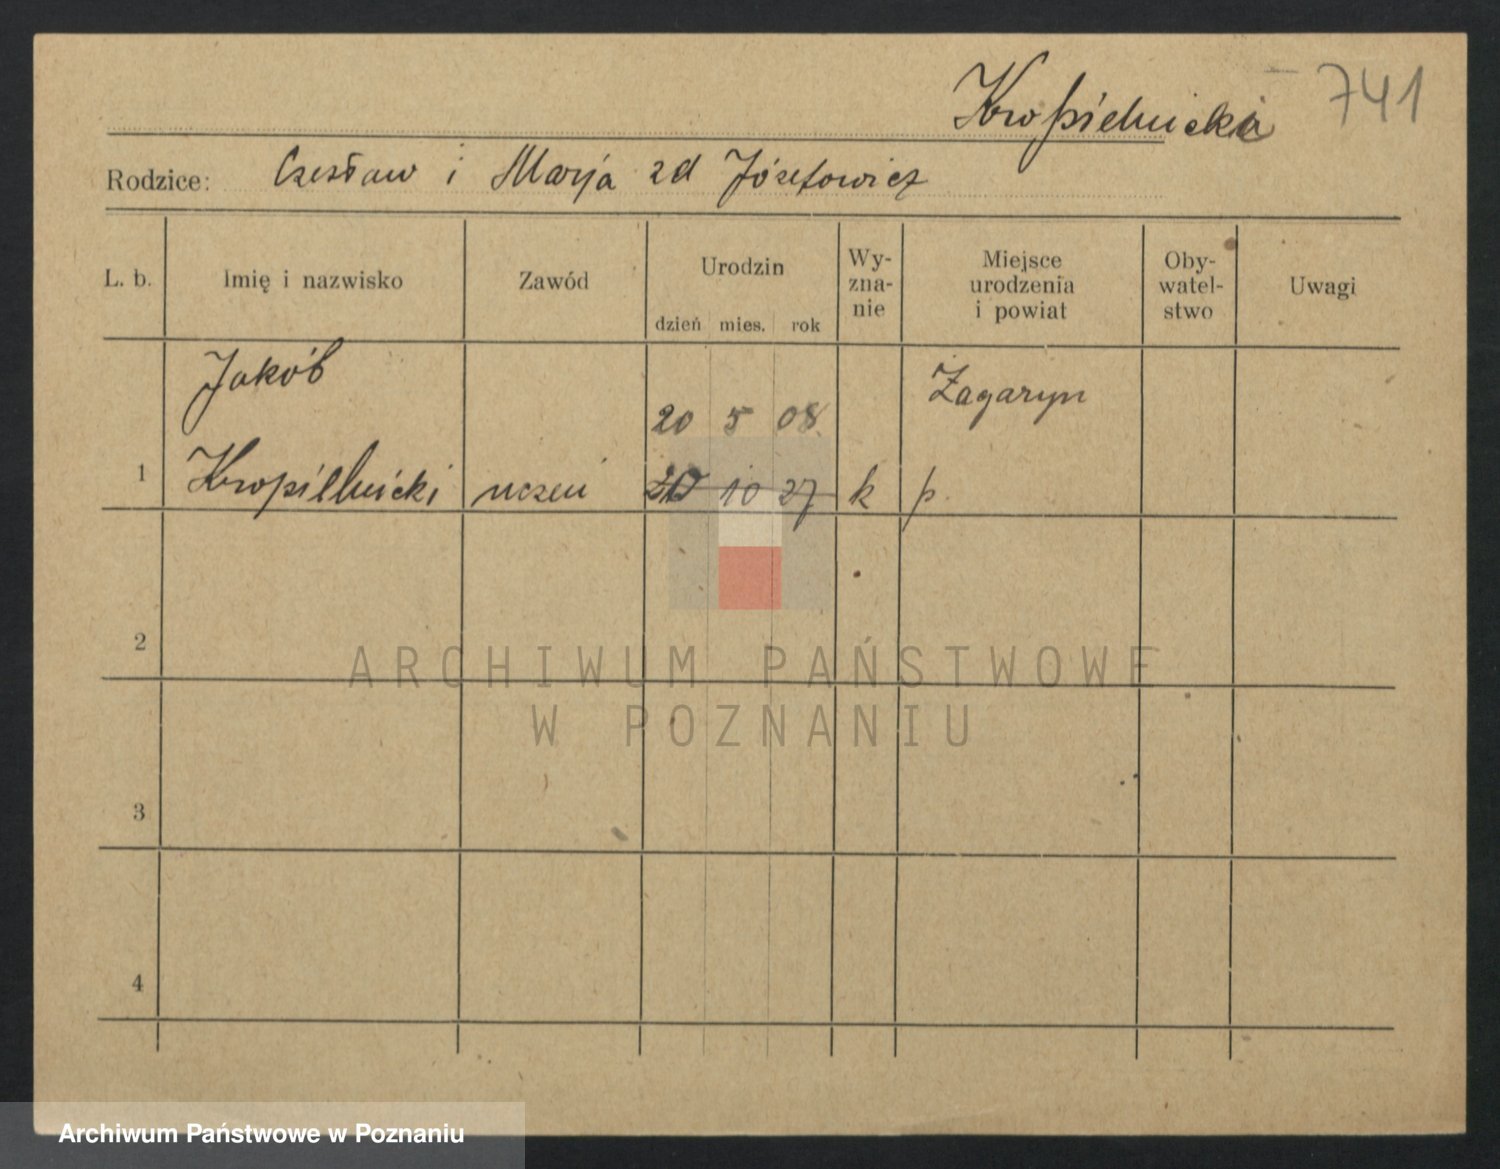 741
Kropielnicki
Rodzice: Czesław i Marja zd Józefowicz
L. b. Imię i nazwisko Zawód Urodzin dzień mies. rok Wy-zna-nie Miejsce urodzenia i powiat Oby-watel-stwo Uwagi
Jakób Żagaryn
20 5 08
1 Kropielnicki uczeń 10 27 k p
2
ARCHIWUM PAŃSTWOWE
W POZNANIU
3
4
Archiwum Państwowe w Poznaniu